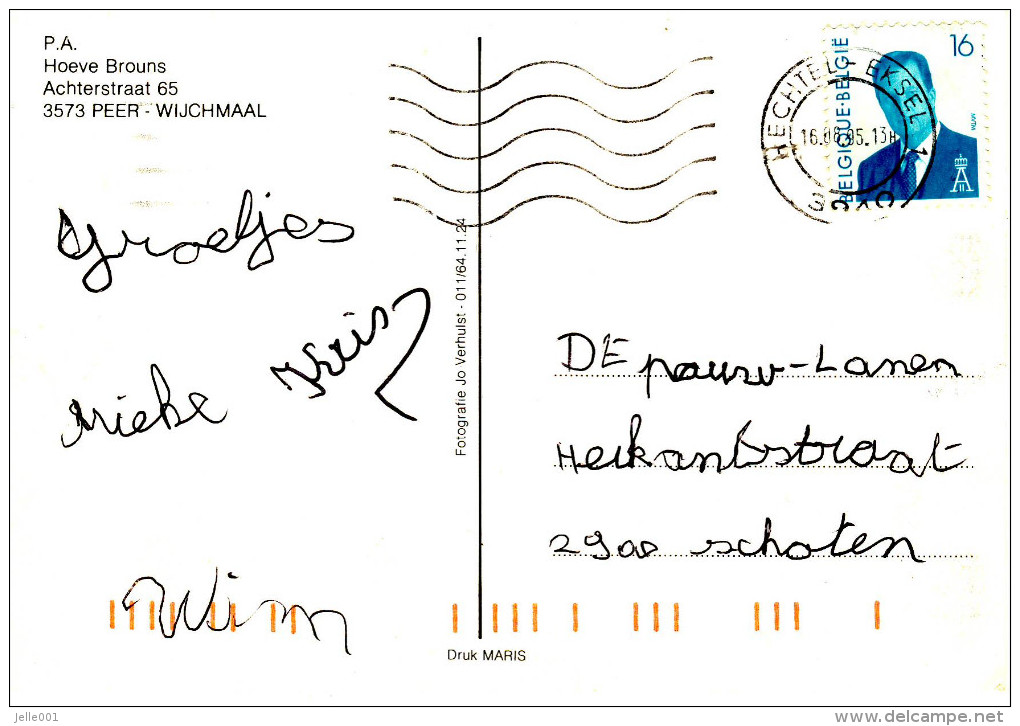 P.A.
Hoeve Brouns
Achterstraat 65
3573 PEER - WIJCHMAAL
BELGIQUE·BELGIË
16
MVTM
HECHTEL-EKSEL 1
16.08.95.13H
Groetjes
Mieke
Kris
Wim
Fotografie Jo Verhulst - 011/64.11.24
DE pauw-Lanen
Heikantstraat
2900 schoten
Druk MARIS
jelle001
delcampe.net